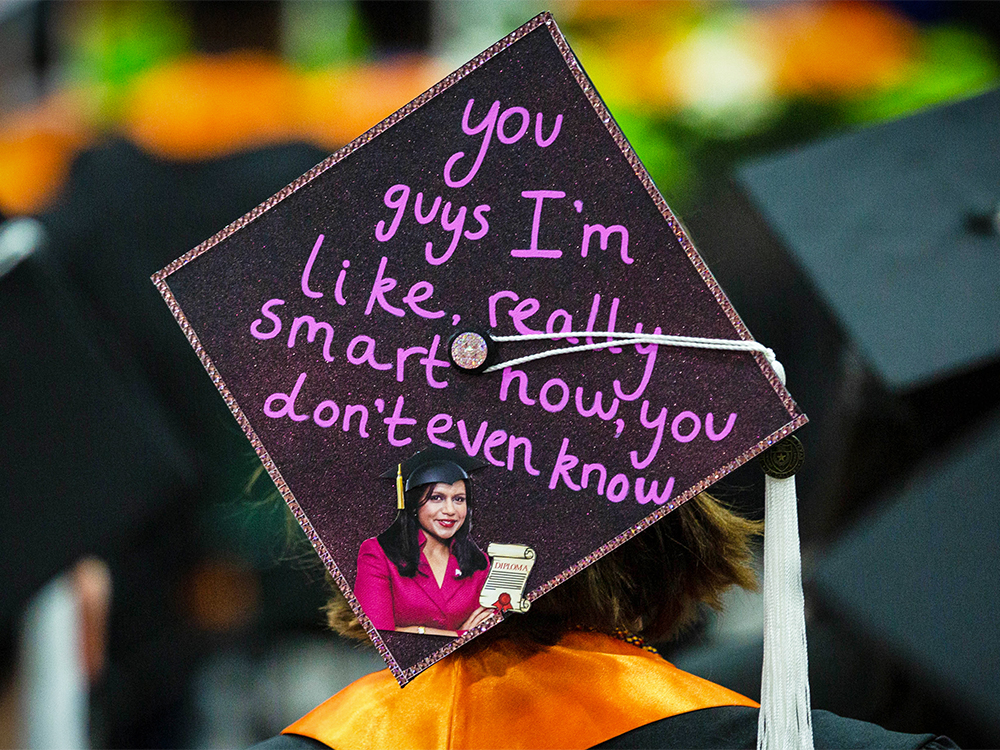 you
guys I'm
like, really
smart now, you
don't even know
DIPLOMA